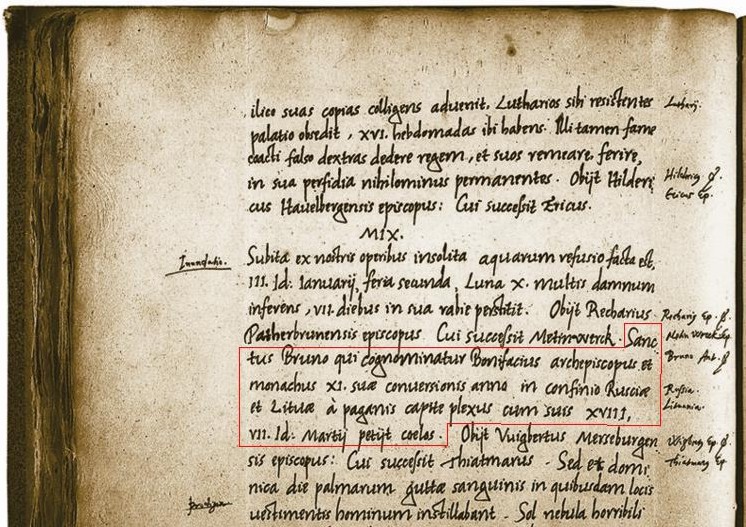 ilico suas copias colligens advenit. Lutharios sibi resistentes
Lutharij.
palatio obsedit, xvi. hebdomadas ibi habens. Illi tamen fame
coacti falso dextras dedere regem, et suos remeare, ferire,
in sua perfidia nihilominus permanentes. Obijt Hilderi
cus Havelbergensis episcopus: Cui successit Ericus.
Ericus Ep.
MIX.
Subita ex nostris operibus insolita aquarum refusio facta est,
Inundatio.
III. Id: Ianuarij, feria secunda, Luna x. multis damnum
inferens, vii. diebus in sua rabie perstitit. Obijt Recharius
Recharius Ep.
Patherbrunensis episcopus. Cui successit Metinwerck. Sanc
tus Bruno qui cognominatur Bonifacius archepiscopus et
Bruno
monachus xi. suæ conversionis anno in confinio Rusciæ
Russia.
et Lituæ à paganis capite plexus cum suis xviii,
Lituania.
vii. Id: Martij petijt coelos. Obijt Vuigbertus Merseburgen
Wigbertus Ep.
sis episcopus: Cui successit Thiatmarus. Sed et domi
Thiatmarus Ep.
nica die palmarum guttæ sanguinis in quibusdam locis
vestimentis hominum instillabant. Sol nebula horribili